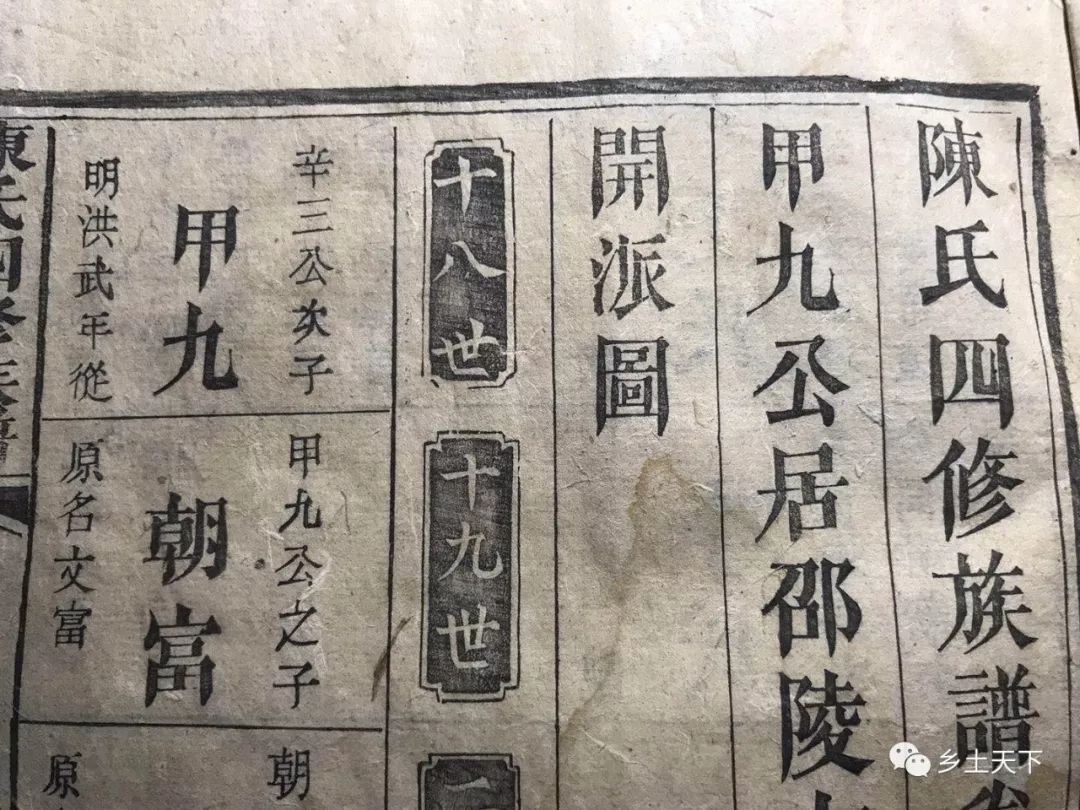 陳氏四修族譜
甲九公居邵陵
開派圖
十八世
十九世
辛三公次子
甲九
明洪武年從
甲九公之子
朝富
原名文富
朝
原
陳氏四修族譜
乡土天下